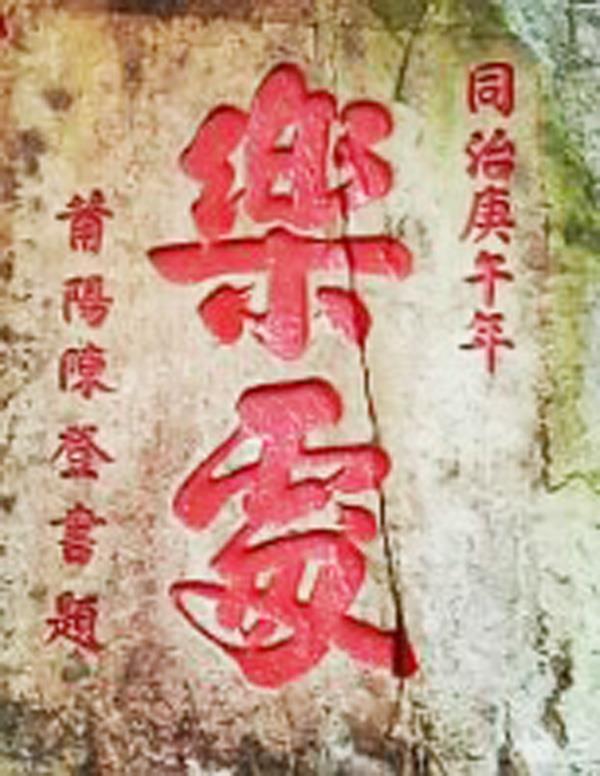 同治庚午年
樂處
莆陽陳登書題